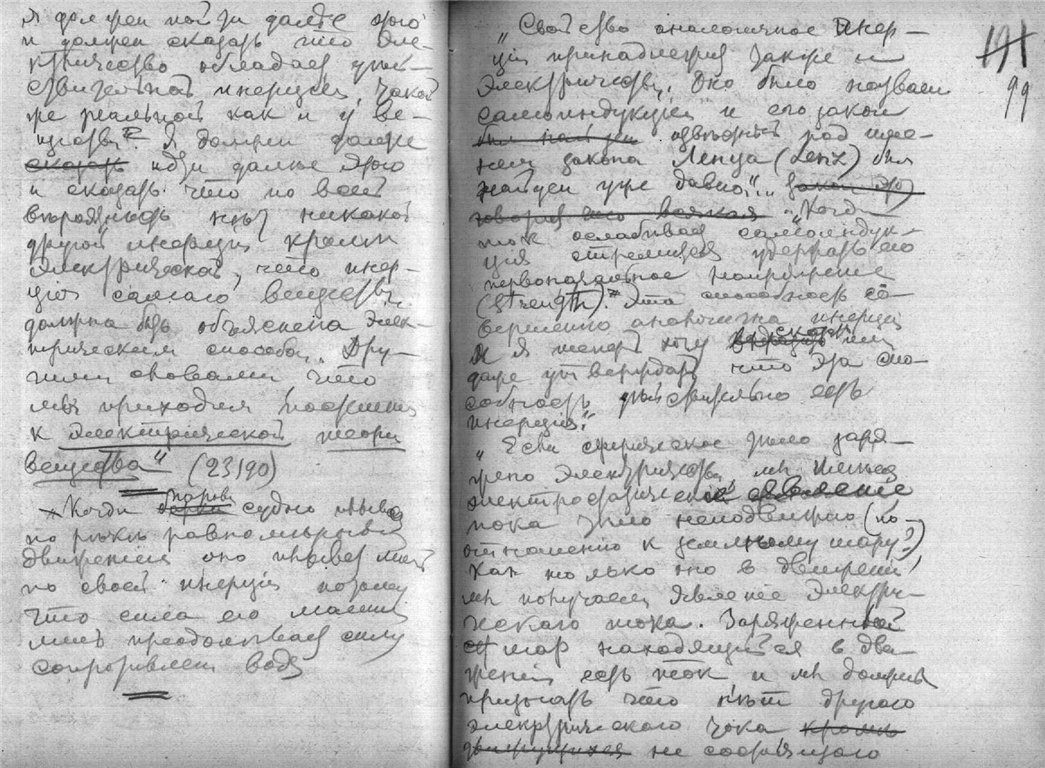 Я должен пойти далее этого
и должен сказать что элек-
тричество обладает дей-
ствительной инерцией, такой
же реальной как и у ве-
щества. Я должен даже
сказать идти далее этого
и сказать что по всей
вѣроятность нѣт никакой
другой инерции кроме
электрической, что инер-
ція самаго вещества
должна быть объяснена элек-
трическим способом. Дру-
гими словами что
мы приходим
к электрической теории
вещества" (23190)
Когда паров. судно
по рѣкѣ равномѣрным
движеніем оно
по своей инерціи потому
что сила его машины
лишь преодолѣвает силу
сопротивлен воды
191
99
„Свойство аналогичное инер-
ции принадлежит также и
электричеству. Оно было названо
самоиндукціей и его закон
был най извѣстный под име-
нем закона Ленца (Lenz) был
найден уже давно"... закон этот
говорит что всякая „Когда
ток ослабевает самоиндук-
ция стремится удержать его
первоначальное напряжение
(strength). Эта способность со-
вершенно аналогична инерции
И я теперь могу сказать или
даже утверждать что эта спо-
собность действительно есть
инерция."
„Если сферическое тело заря-
жено электричеством мы имеем
электростатическое явленіе
пока тело неподвижно (по
отношению к земному шару?)
Как только оно в движении
мы получаем явленіе электри-
ческаго тока. Заряженный
шар находящийся в дви-
жении есть ток и мы должны
признать что нѣт другого
электрического тока кроме
движущихся не состоящаго